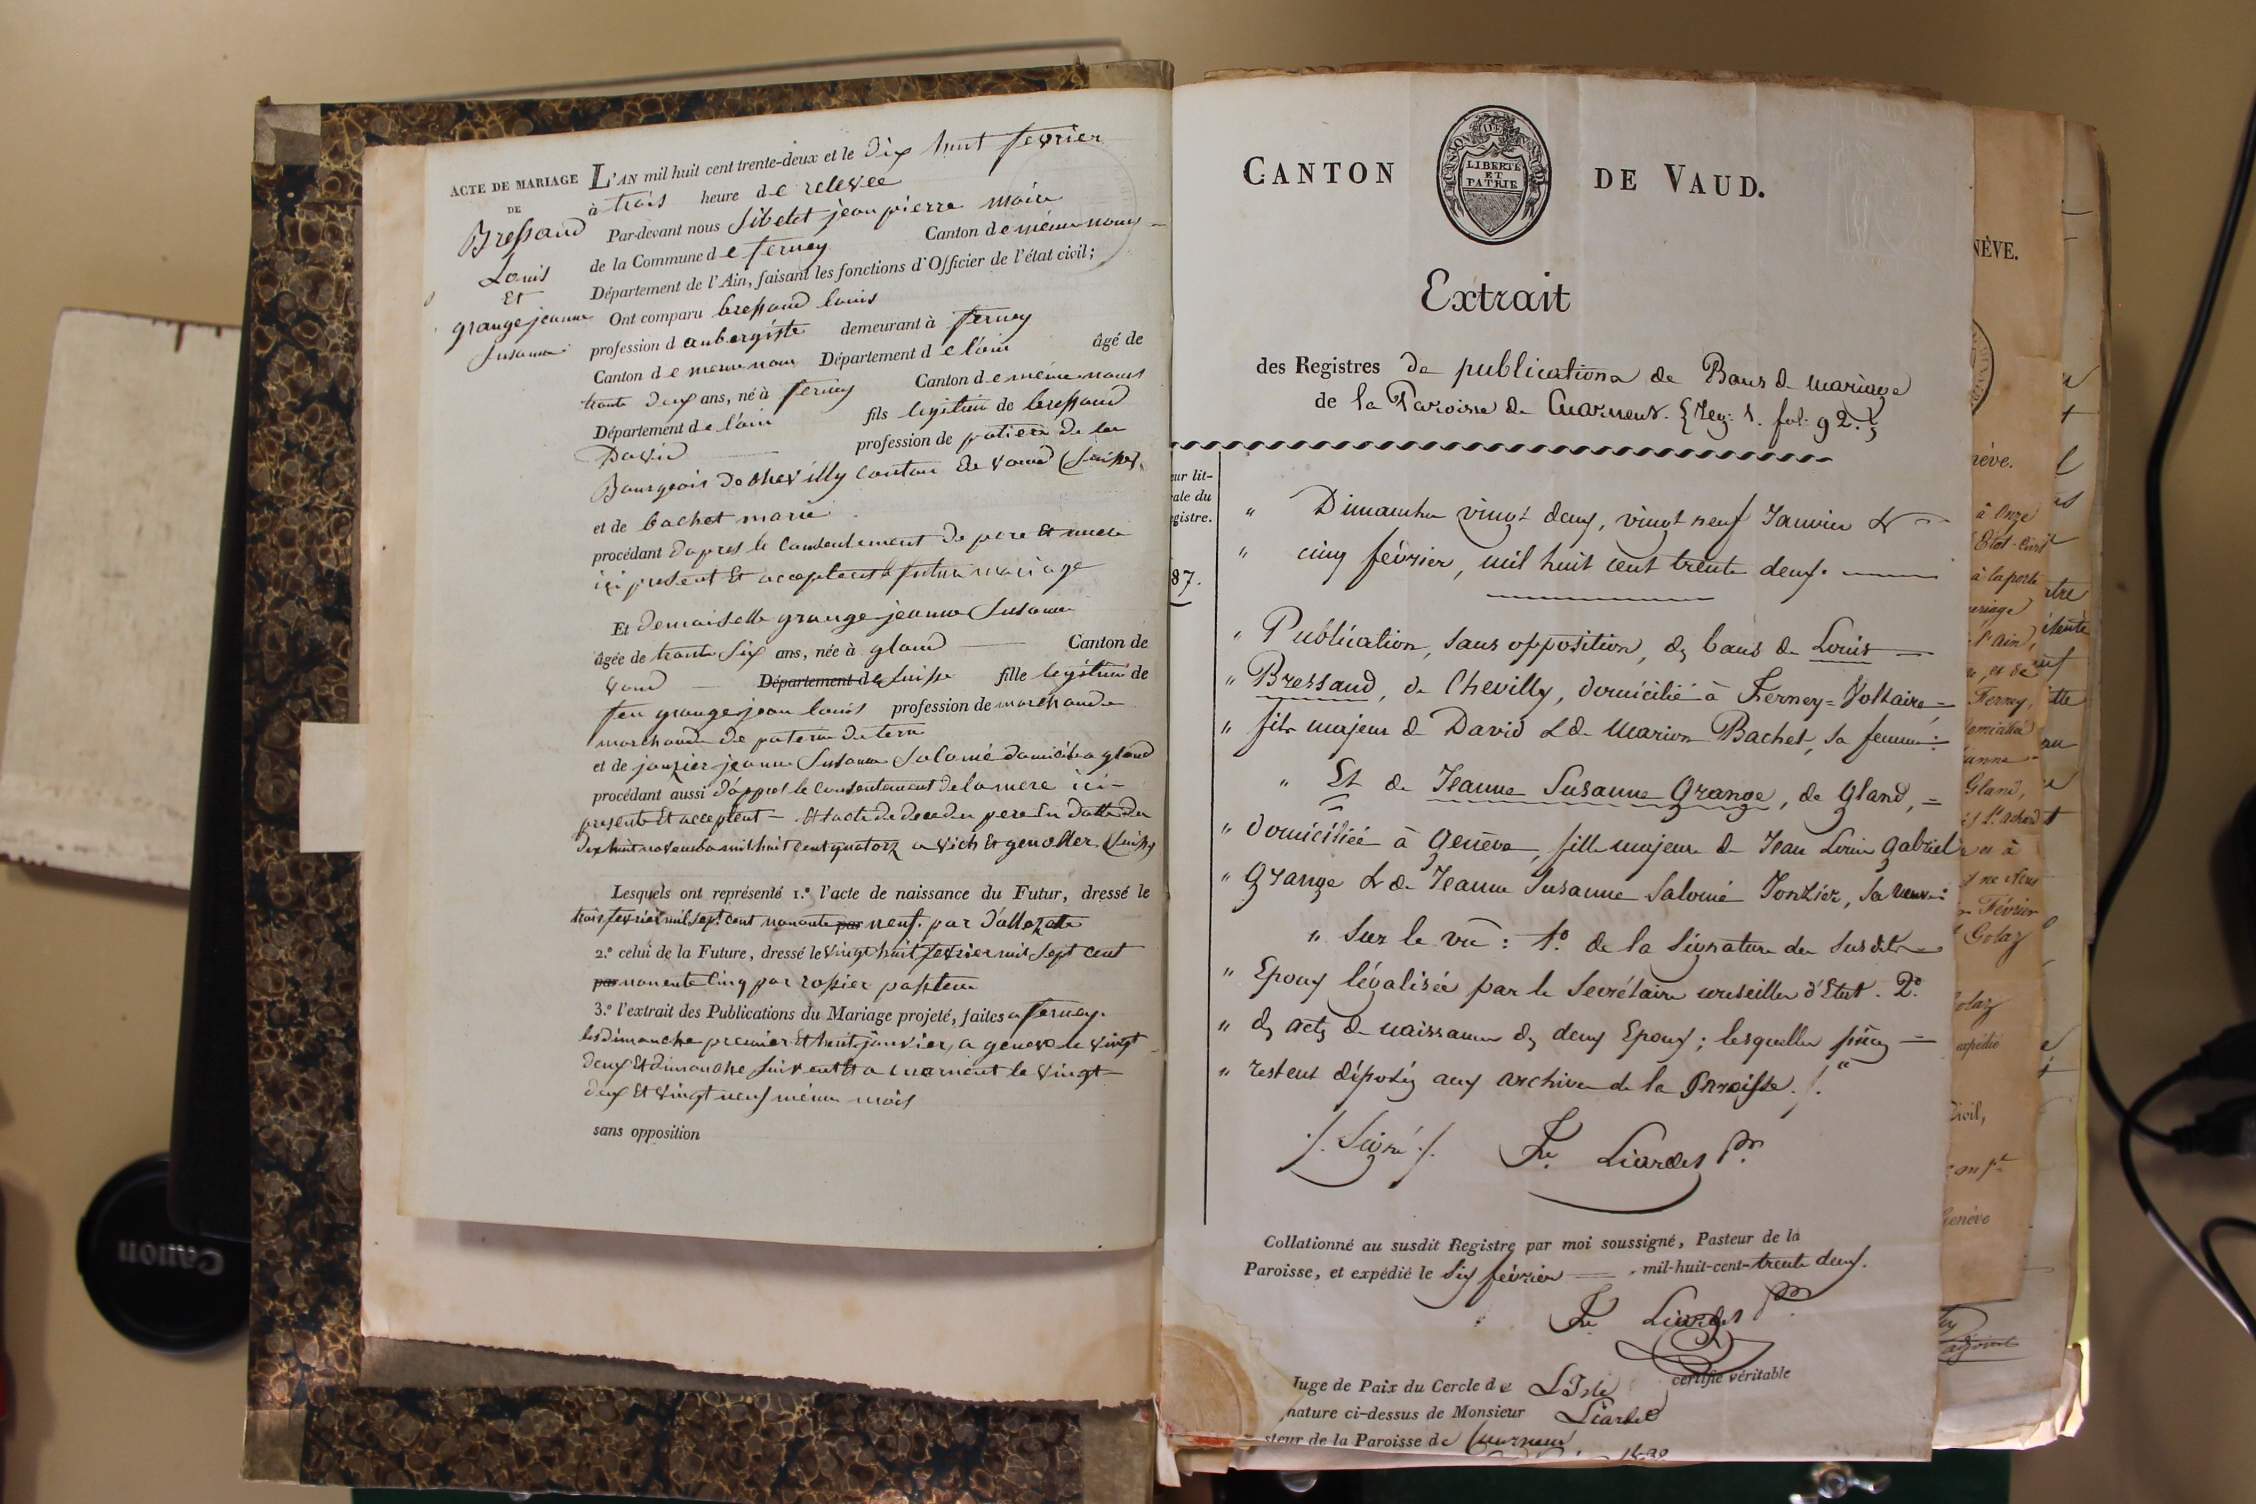 ACTE DE MARIAGE
DE
Bressand
Louis
Et
grange jeanne
Susanne
L'AN mil huit cent trente-deux et le dix huit fevrier
à trois heure de relevée
Par-devant nous Sibelot jean pierre maire
de la Commune de ferney Canton de méme nom
Département de l'Ain, faisant les fonctions d'Officier de l'état civil;
Ont comparu bressand louis
profession d aubergiste demeurant à ferney
Canton de meme nom Département de l'ain âgé de
trante deux ans, né à ferney Canton de méme nom
Département de l'ain fils legitime de bressand
David profession de potiere de ter
Bourgeois de chevilly canton de vaud (Suisse)
et de bachet marie
procédant dapres le consentement de pere Et mere
ici present Et acceptent le futur mariage
Et demaiselle grange jeanne Susanne
âgée de trante Six ans, née à gland Canton de
vaud Département de Suisse fille legitime de
feu grange jean louis profession de marchand
marchand de poterie de terre
et de jonzier jeanne Susanne Salomé domiciliée a gland
procédant aussi d'apprés le consentement de la mere ici
presente Et acceptent - Et l'acte de deces du pere En datte du
dix huit novembre mil huit cent quatorz a vich Et genollier (Suisse)
Lesquels ont représenté 1.º l'acte de naissance du Futur, dressé le
trois fevrier mil sept cent nonante par neuf par d'allozatte
2.º celui de la Future, dressé le vingt huit fevrier mil sept cent
par nonente cinq par rossier pasteur
3.º l'extrait des Publications du Mariage projeté, faites a ferney
les dimanche premier Et huit janvier, a geneve le vingt
deux Et dimanche suivent Et a cuarnent le vingt
deux Et vingt neuf méme mois
sans opposition
CANTON DE VAUD.
CANTON DE VAUD
LIBERTÉ
ET
PATRIE
Extrait
des Registres de publications de Bans de mariage
de la Paroisse de Cuarnens. {Reg: 1. fol: 92.}
eur lit-
ale du
gistre.
87.
" Dimanche vingt deux, vingt neuf Janvier &
" cinq février, mil huit cent trente deux.
" Publication, sans opposition, des bans de Louis
" Bressand, de Chevilly, domicilié à Ferney=Voltaire,
" fils majeur de David & de Marion Bachet, sa femme:
" Et de Jeanne Susanne Grange, de Gland, =
" domiciliée à Genève, fille majeure de Jean Louis Gabriel
" Grange & de Jeanne Susanne Salomé Jonzier, sa veuve:
" Sur le vû: 1.º de la Signature des susdits
" Epoux légalisée par le Secrétaire conseiller d'Etat. 2.º
" des actes de naissance des deux Epoux; lesquelles pièces
" restent déposées aux archives de la Paroisse. /. "
./. Signé ./. Fr. Liardet Pr.
Collationné au susdit Registre par moi soussigné, Pasteur de la
Paroisse, et expédié le Six février mil-huit-cent-trente deux.
Fr. Liardet Pr.
Juge de Paix du Cercle de L'Isle certifie véritable
nature ci-dessus de Monsieur Liardet
steur de la Paroisse de Cuarnens
NÈVE.
nève.
à Onze
Etat-Civil
à la porte
mariage
l'Ain,
Ferney,
Gland,
Février
Golaz
Golaz
expédié
Civil,
Genève
Canon